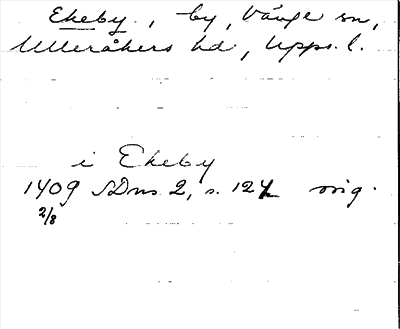 Ekeby, by, Vänge sn,
Ulleråkers hd, Upps. l.
i Ekeby
1409 SDns 2, s. 127 orig.
2/8